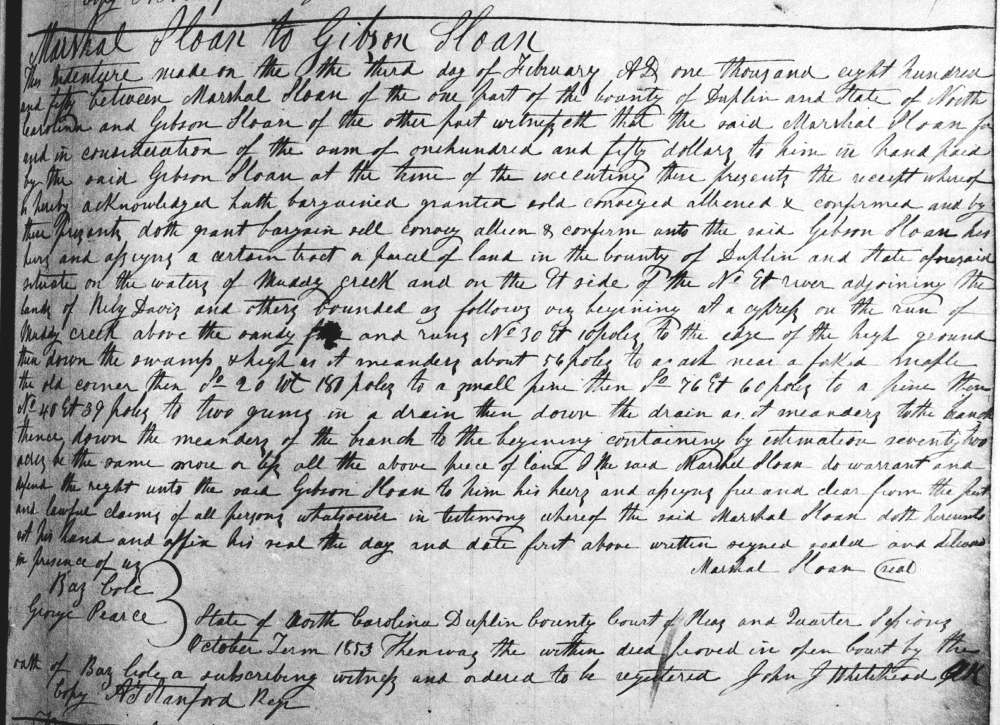 Marshal Sloan to Gibson Sloan
This Indenture made on the the third day of February AD one thousand eight hundred
and fifty between Marshal Sloan of the one part of the County of Duplin and State of North
Carolina and Gibson Sloan of the other part witnesseth that the said Marshal Sloan for
and in consideration of the sum of one hundred and fifty dollars to him in hand paid
by the said Gibson Sloan at the time of the executing these presents the receipt whereof
is hereby acknowledged hath bargained granted sold conveyed alliened & confirmed and by
these presents doth grant bargain sell convey allien & confirm unto the said Gibson Sloan his
heirs and assigns a certain tract or parcel of land in the County of Duplin and State aforesaid
situate on the waters of Muddy Creek and on the Et side of the No Et river adjoining the
lands of Rily Davis and others bounded as follows viz begining at a cypress on the run of
Muddy creek above the sandy and runs No 30 Et 10 poles to the edge of the high ground
then down the swamp & high as it meanders about 56 poles to a ash near a forked maple
the old corner then So 20 Wt 180 poles to a small pine then So 76 Et 60 poles to a pine then
No 40 Et 39 poles to two gums in a drain then down the drain as it meanders to the branch
thence down the meanders of the branch to the begining containing by estimation seventy two
acres be the same more or less all the above piece of land I the said Marshal Sloan do warrant and
defend the right unto the said Gibson Sloan to him his heirs and assigns free and clear from the
and lawful claims of all persons whatsoever in testimony whereof the said Marshal Sloan doth hereunto
set his hand and affix his seal the day and date first above written signed sealed and delivered
in presence of us
Marshal Sloan (seal)
Baz Cole
George Pearce
State of North Carolina Duplin County Court of Pleas and Quarter Sessions
October Term 1853 Then was the within deed proved in open Court by the
oath of Baz Cole a subscribing witness and ordered to be registered John J Whitehead Clk
Copy Stanford Regr